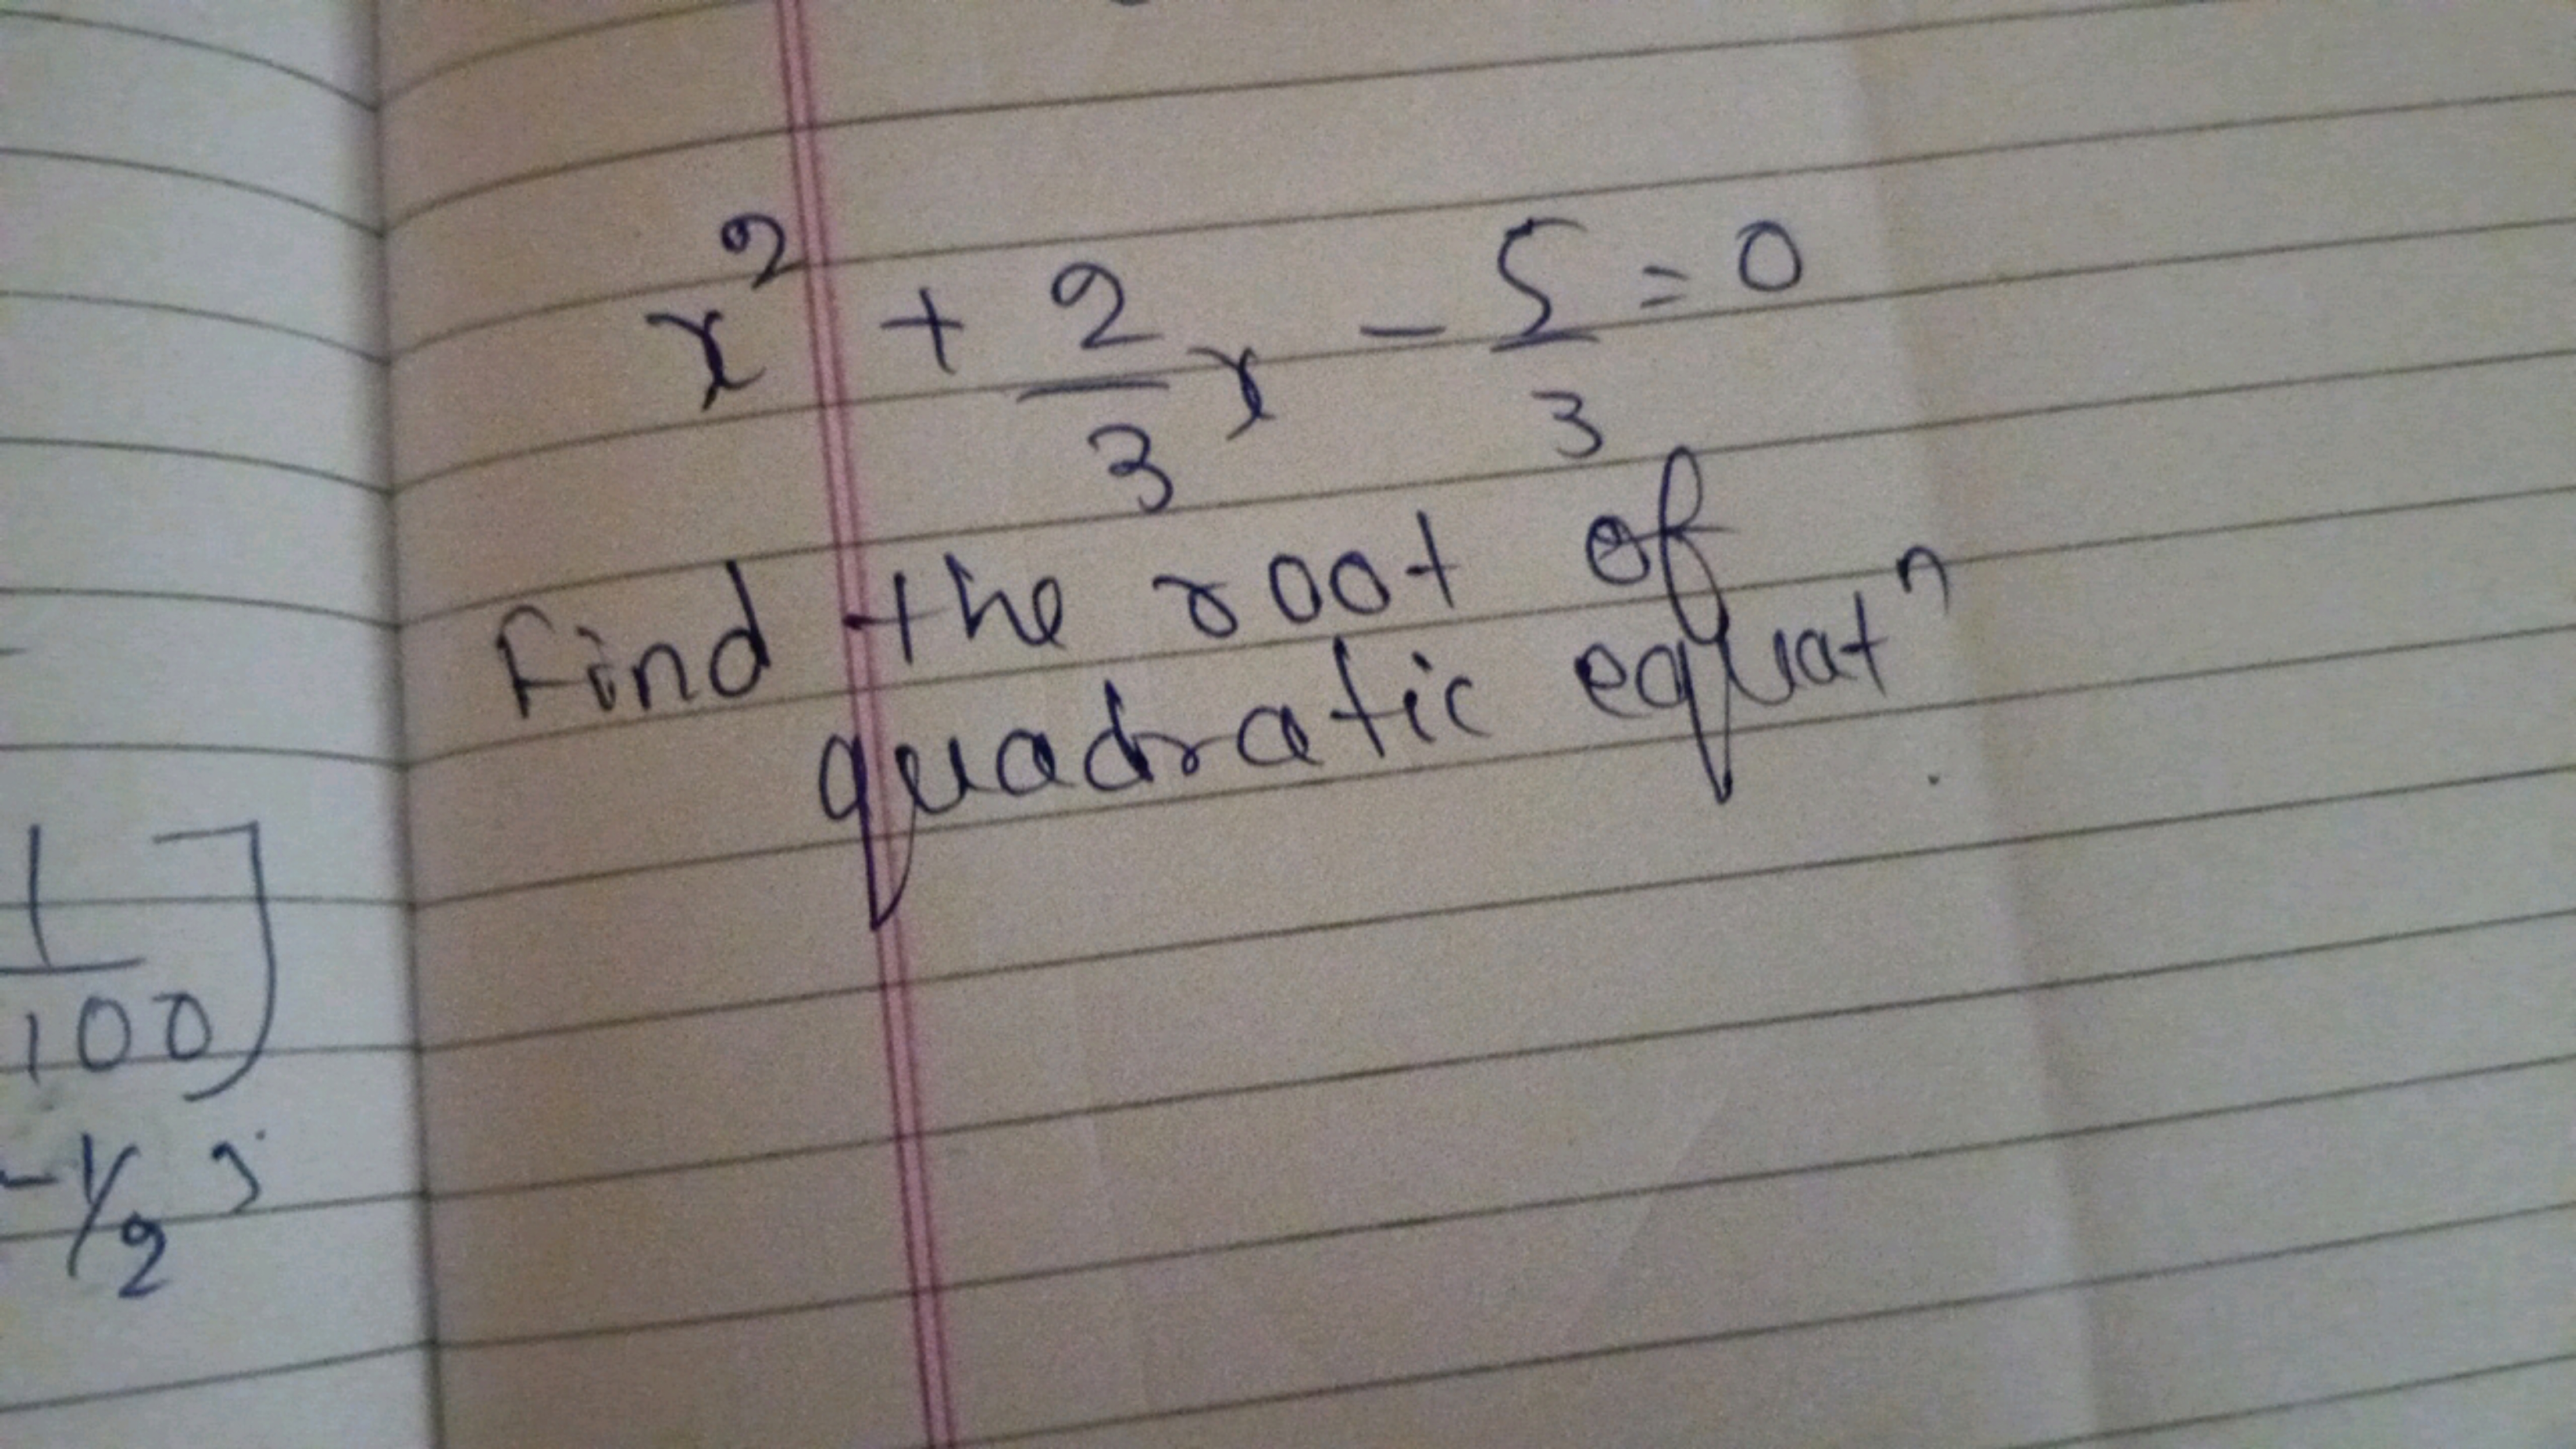 1
100]
-1/2
x² + 2/3 x - 5/3 = 0
Find the root of
quadratic equatⁿ.